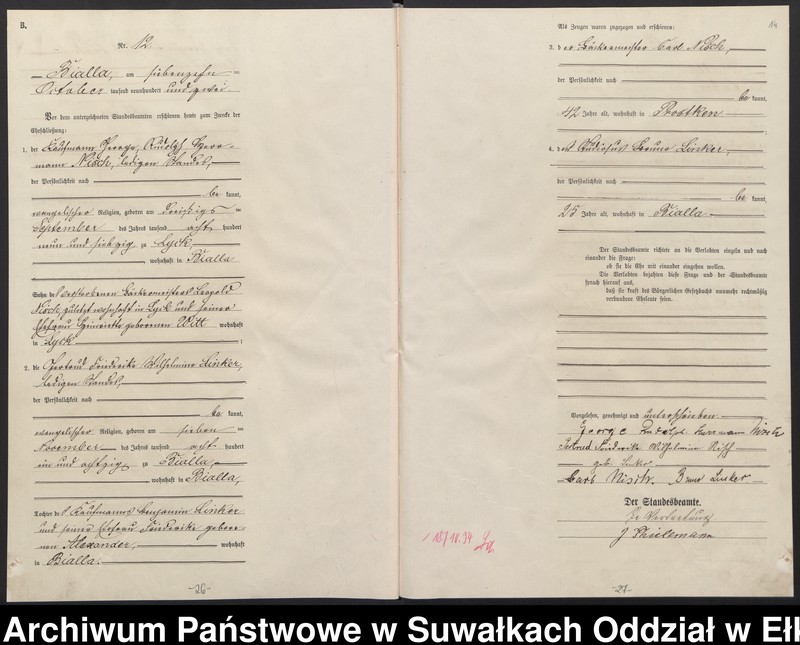 B.
Nr. 12
Bialla, am siebenzehn
October tausend neunhundert und zwei
Vor dem unterzeichneten Standesbeamten erschienen heute zum Zwecke der
Eheschließung:
1. der Kaufmann George Rudolf Herr-
mann Nisch, ledigen Standes,
der Persönlichkeit nach
be kannt,
evangelischer Religion, geboren am dreißigs
September des Jahres tausend acht hundert
neun und siebzig zu Lyck,
wohnhaft in Bialla
Sohn des verstorbenen Bäckermeisters Leopold
Nisch, zuletzt wohnhaft in Lyck und seiner
Ehefrau Henriette geborenen Witt wohnhaft
in Lyck ;
2. die Gertrud Friederike Wilhelmine Linker,
ledigen Standes,
der Persönlichkeit nach
be kannt,
evangelischer Religion, geboren am sieben
November des Jahres tausend acht hundert
ein und achtzig zu Bialla,
wohnhaft in Bialla,
Tochter des Kaufmanns Benjamin Linker
und seiner Ehefrau Friederike gebore-
nen Alexander, wohnhaft
in Bialla.
-26-
14
Als Zeugen waren zugezogen und erschienen:
3. der Bäckermeister Carl Nisch,
der Persönlichkeit nach
be kannt,
42 Jahre alt, wohnhaft in Prostken
;
4. der Bruno Linker,
der Persönlichkeit nach
be kannt,
25 Jahre alt, wohnhaft in Bialla
Der Standesbeamte richtete an die Verlobten einzeln und nach
einander die Frage:
ob sie die Ehe mit einander eingehen wollen.
Die Verlobten bejahten diese Frage und der Standesbeamte
sprach hierauf aus,
daß sie kraft des Bürgerlichen Gesetzbuchs nunmehr rechtmäßig
verbundene Eheleute seien.
Vorgelesen, genehmigt und unterschrieben:
George Rudolph Herrmann Nisch
Gertrud Friederike Wilhelmine Nisch
geb. Linker
Carl Nisch. Bruno Linker
Der Standesbeamte.
In Vertretung
J Thielemann
-27-
Archiwum Państwowe w Suwałkach Oddział w Ełk